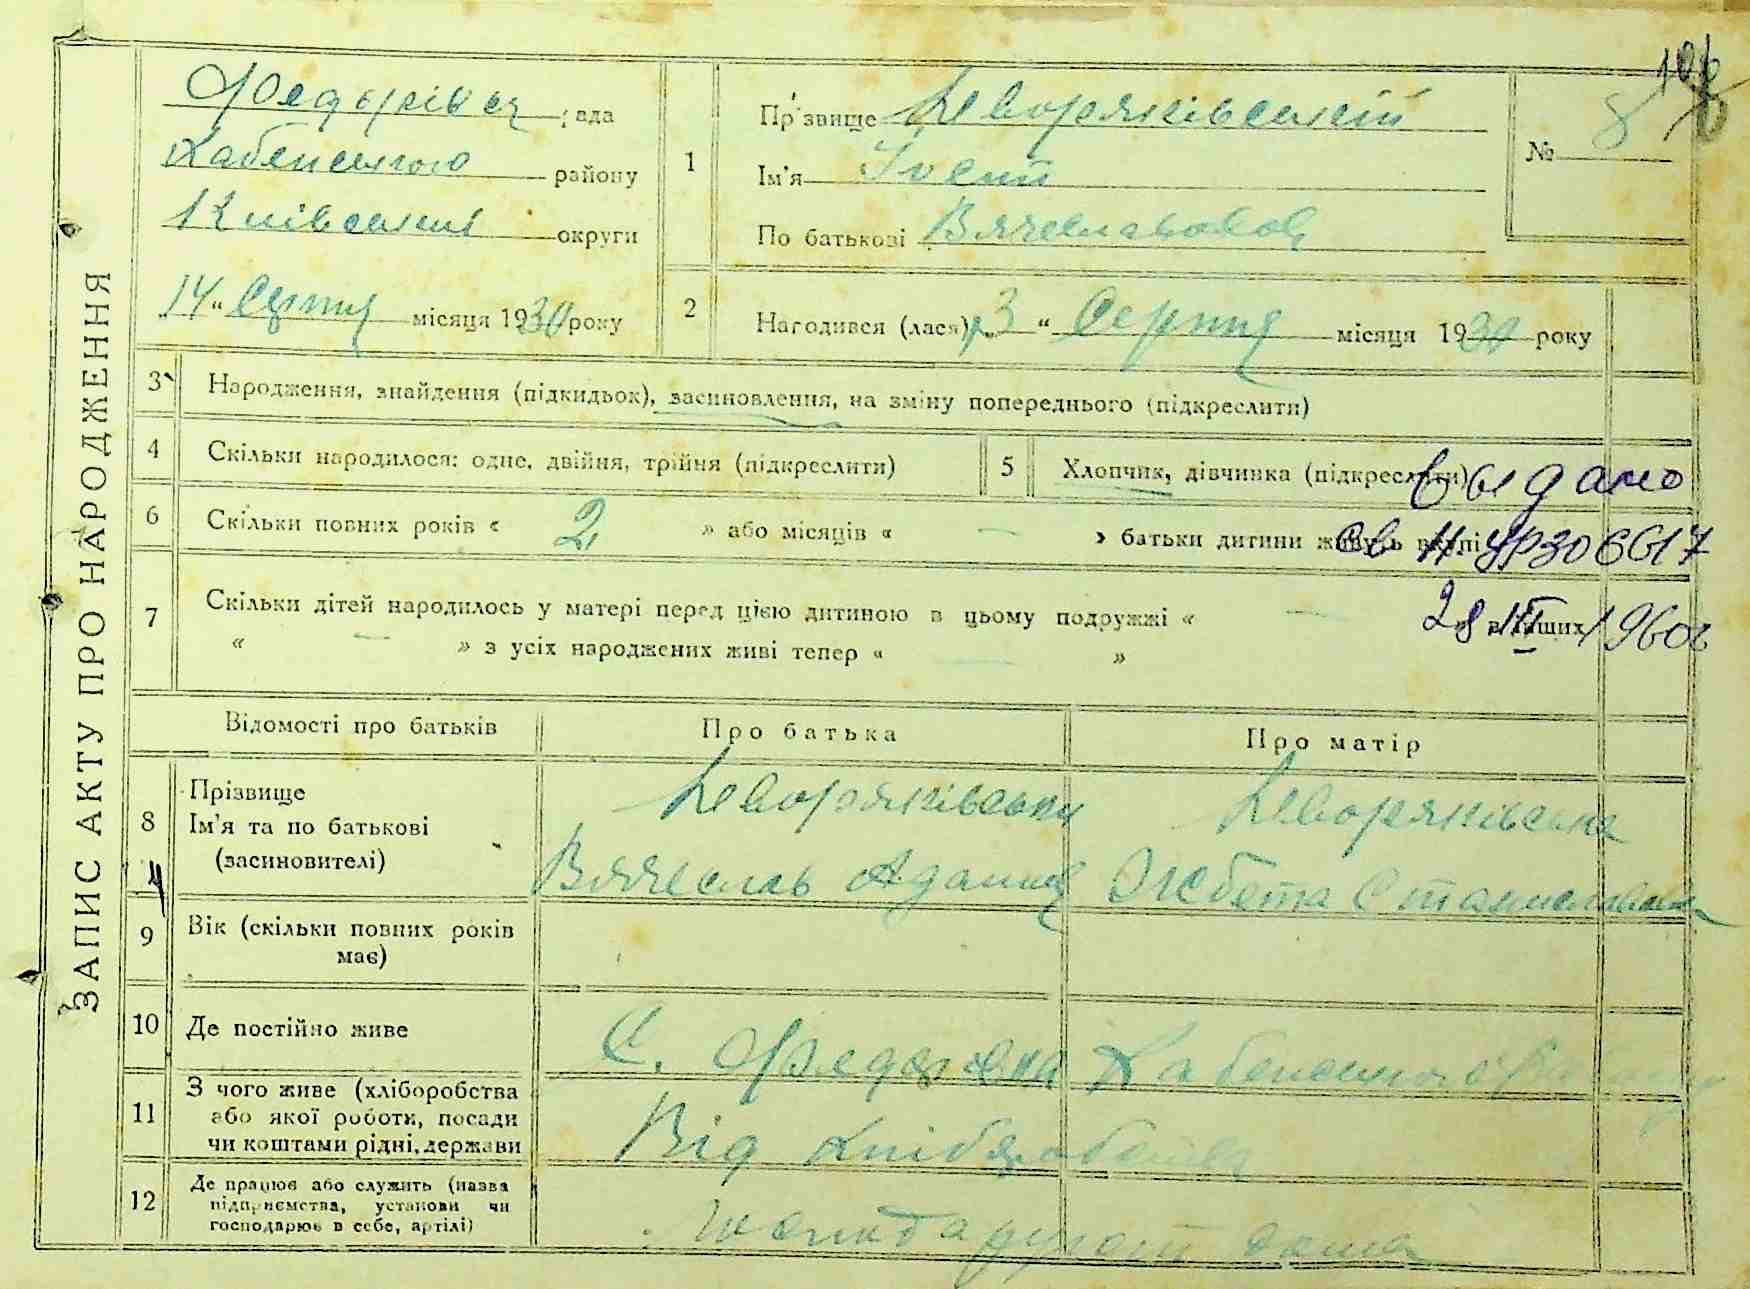 ЗАПИС АКТУ ПРО НАРОДЖЕННЯ
рада
Хабенського району
Київської округи
„14“ Серпня місяця 1930 року
1
Прізвище
Ім'я
По батькові
№ 8
2
Народився (лася) „3“ Серпня місяця 1930 року
3 Народження, знайдення (підкидьок), засиновлення, на зміну попереднього (підкреслити)
4 Скільки народилося: одне, двійня, трійня (підкреслити)
5 Хлопчик, дівчинка (підкреслити)
выдано
6 Скільки повних років « 2 » або місяців « — » батьки дитини живуть вкупі
св Н. УР306617
7 Скільки дітей народилось у матері перед цією дитиною в цьому подружжі « —
в інших
28 III 1960г
« — » з усіх народжених живі тепер « — »
Відомості про батьків
Про батька
Про матір
8 Прізвище
Ім'я та по батькові
(засиновителі)
Вячеслав Адамів
Станиславовна
9 Вік (скільки повних років
має)
10 Де постійно живе
С. Федорівка Хабенського Району
11 З чого живе (хліборобства
або якої роботи, посади
чи коштами рідні, держави
Від хліборобства
12 Де працює або служить (назва
підприємства, установи чи
господарює в себе, артілі)